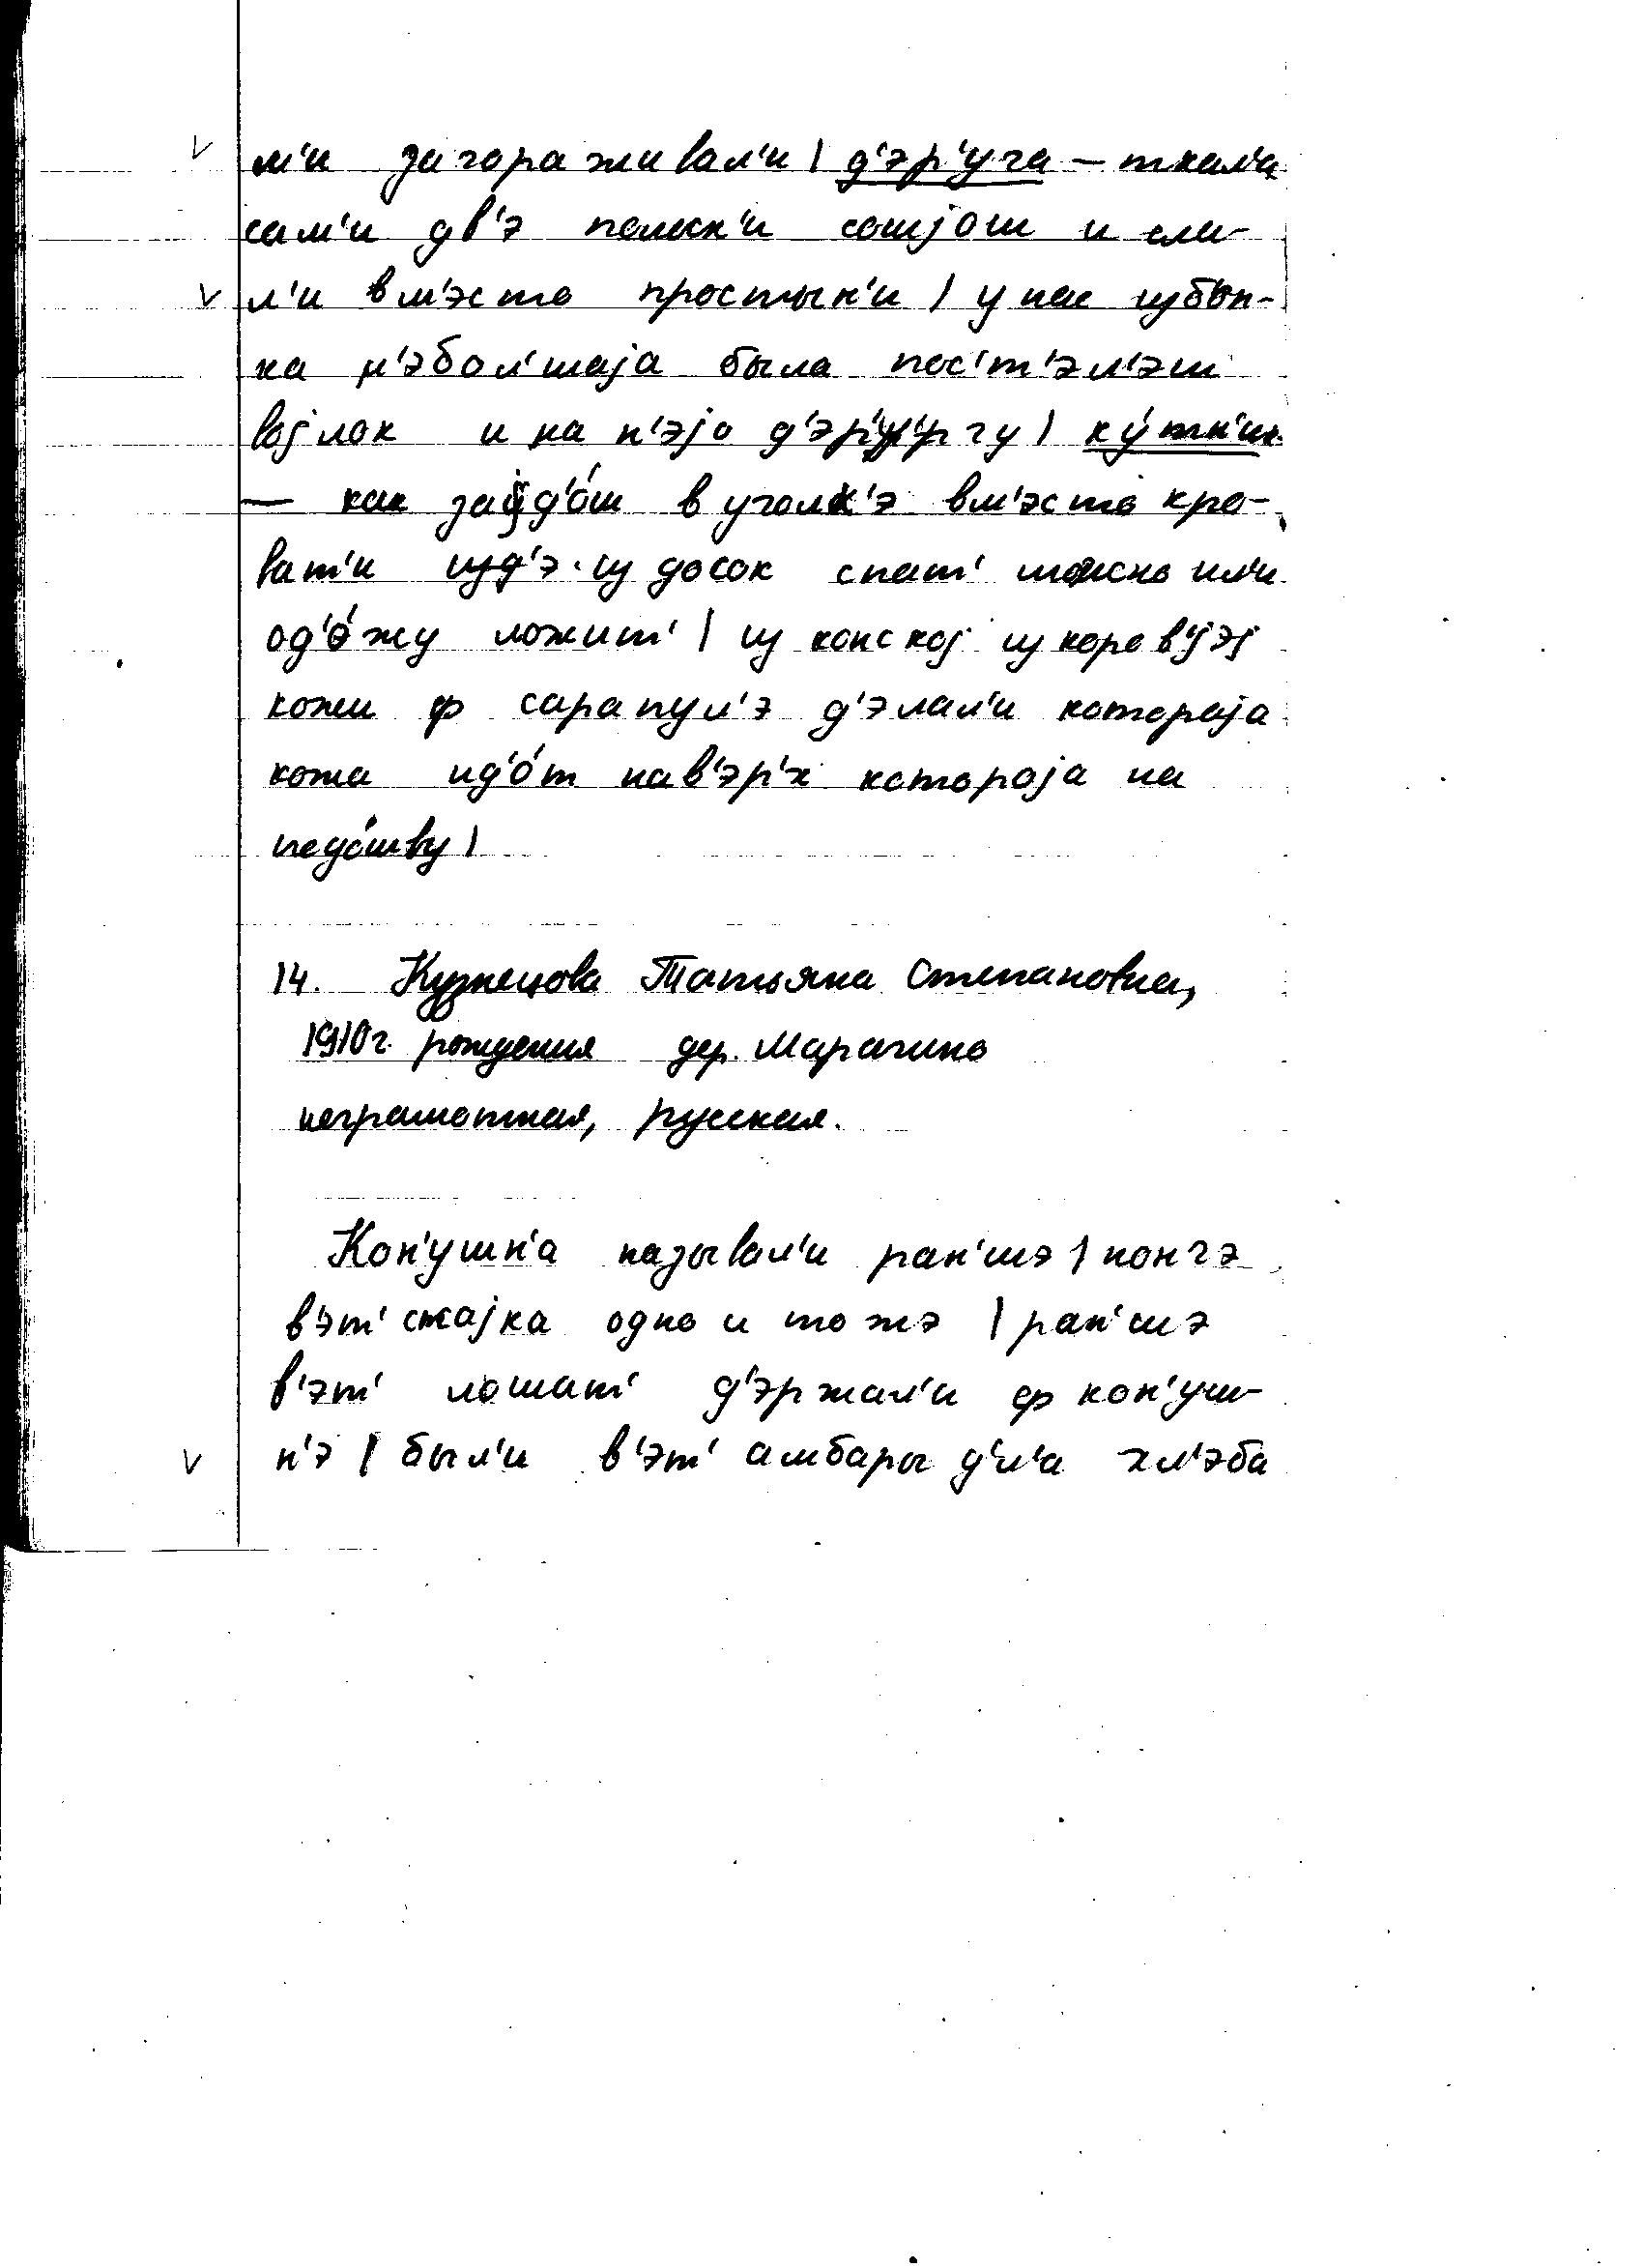 м'и загораживал'и | д'эр'уга – ткал'и
сам'и дв'э полоск'и сошjош и сли-
л'и вм'эсто простын'и | у нас избөн-
ка н'эбол'шаjа была пос'т'эл'эш
воjлок и на н'эjо д'эр'угу | ку́тн'ик
– как заjд'о́ш в уголк'э вм'эсто кро-
ват'и из досок спат' можно ил'и
од'о́жу ложит' | из конскоj из коров'jэj
кожи ф сарапул'э д'элал'и котораjа
кожа ид'о́т нав'эр'х котораjа на
подо́шву |
14. Кузнецова Татьяна Степановна,
1910 г. рождения дер. Марагино
неграмотная, русская.
Кон'ушн'а называл'и ран'шэ | нонгэ
в'эт' стаjка одно и то жэ | ран'шэ
в'эт' лошат' д'эржал'и ф кон'уш-
н'э | был'и в'эт' амбары д'л'а хл'эба